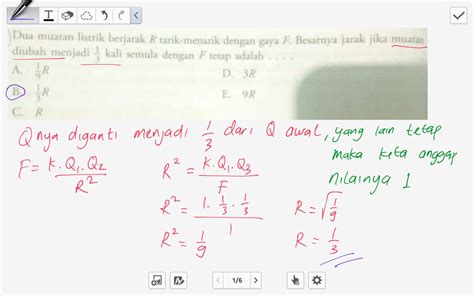 Dua muatan listrik berjarak R tarik-menarik dengan gaya F. Besarnya jarak jika muatan
diubah menjadi 1/3 kali semula dengan F tetap adalah . . . .
A. 1/9 R
D. 3R
B. 1/3 R
E. 9R
C. R
Qnya diganti menjadi 1/3 dari Q awal, yang lain tetap
maka kita anggap
nilainya 1
F = k.Q1.Q2 / R²
R² = k.Q1.Q3 / F
R² = 1. 1/3 . 1/3 / 1
R² = 1/9
R = √1/9
R = 1/3
1/6